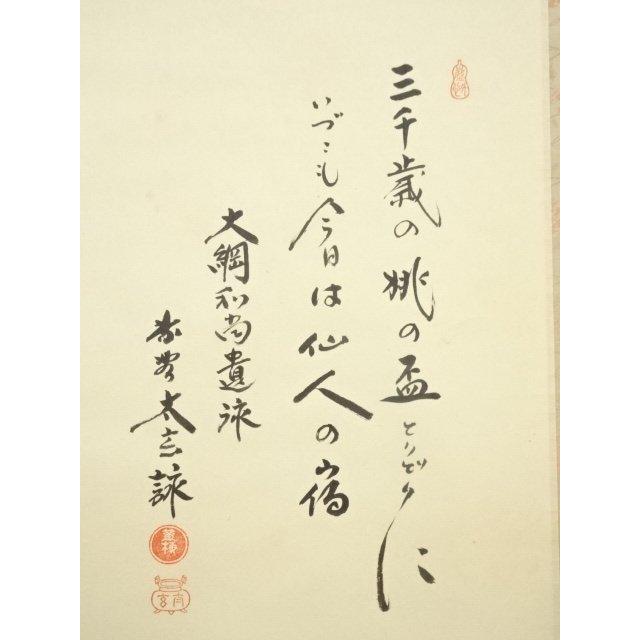 三千歳の桃の盃とりどりに
いづこも今日は仙人の宿
大綱和尚遺詠
太玄